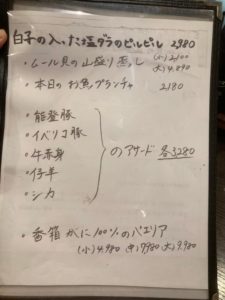 白子の入った塩ダラのピルピル 2980
・ムール貝の山盛り蒸し (小)2100
(大)4.890
・本日のお魚プランチャ 2180
・能登豚
・イベリコ豚
・牛赤身
・仔羊
・シカ
のアサード 各3280
・香箱がに100%のパエリア
(小)4.980 (中)7980 (大)9.980